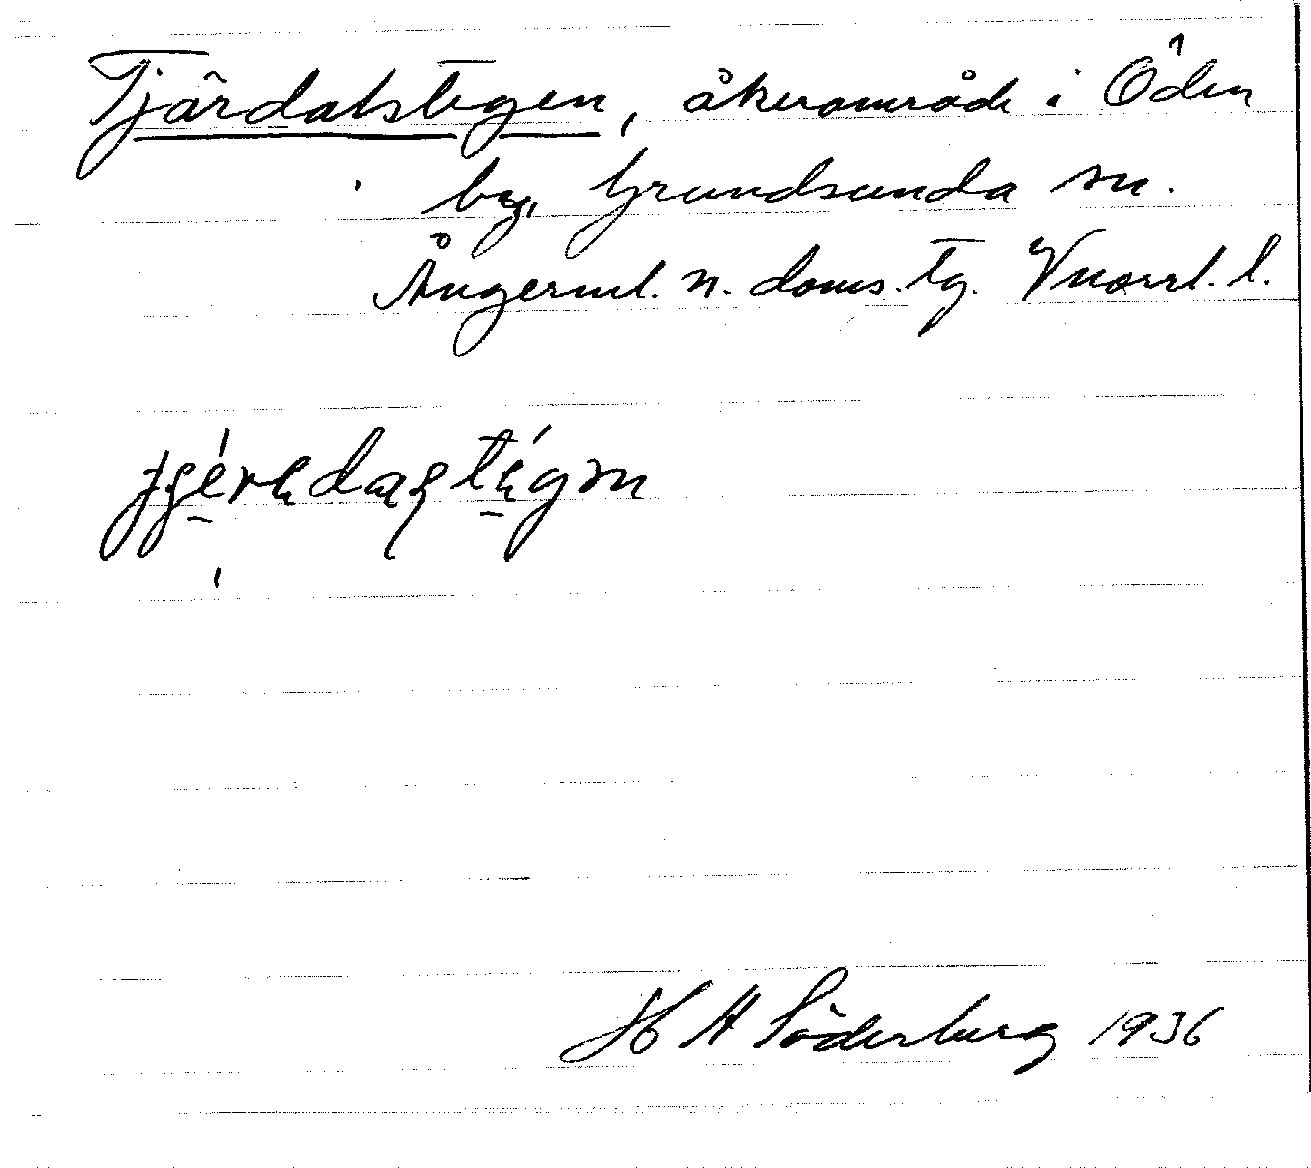 Tjärdalstegen, åkerområde i Öden
by, Grundsunda sn.
Ångerml. n. doms. tg. Vnorrl. l.
H A Söderberg 1936